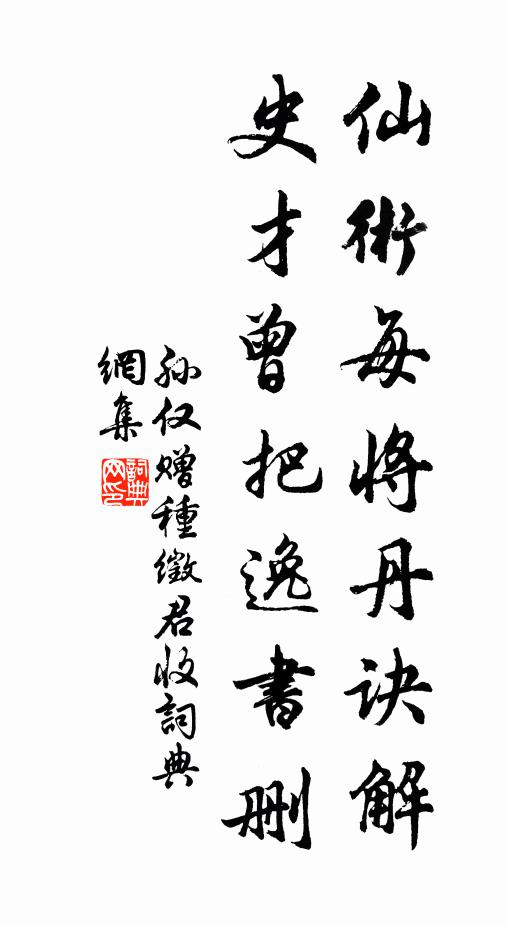 仙術每將丹訣解
史才曾把逸書刪
孙仅赠種徵君收詞典
網集
詞典
网印